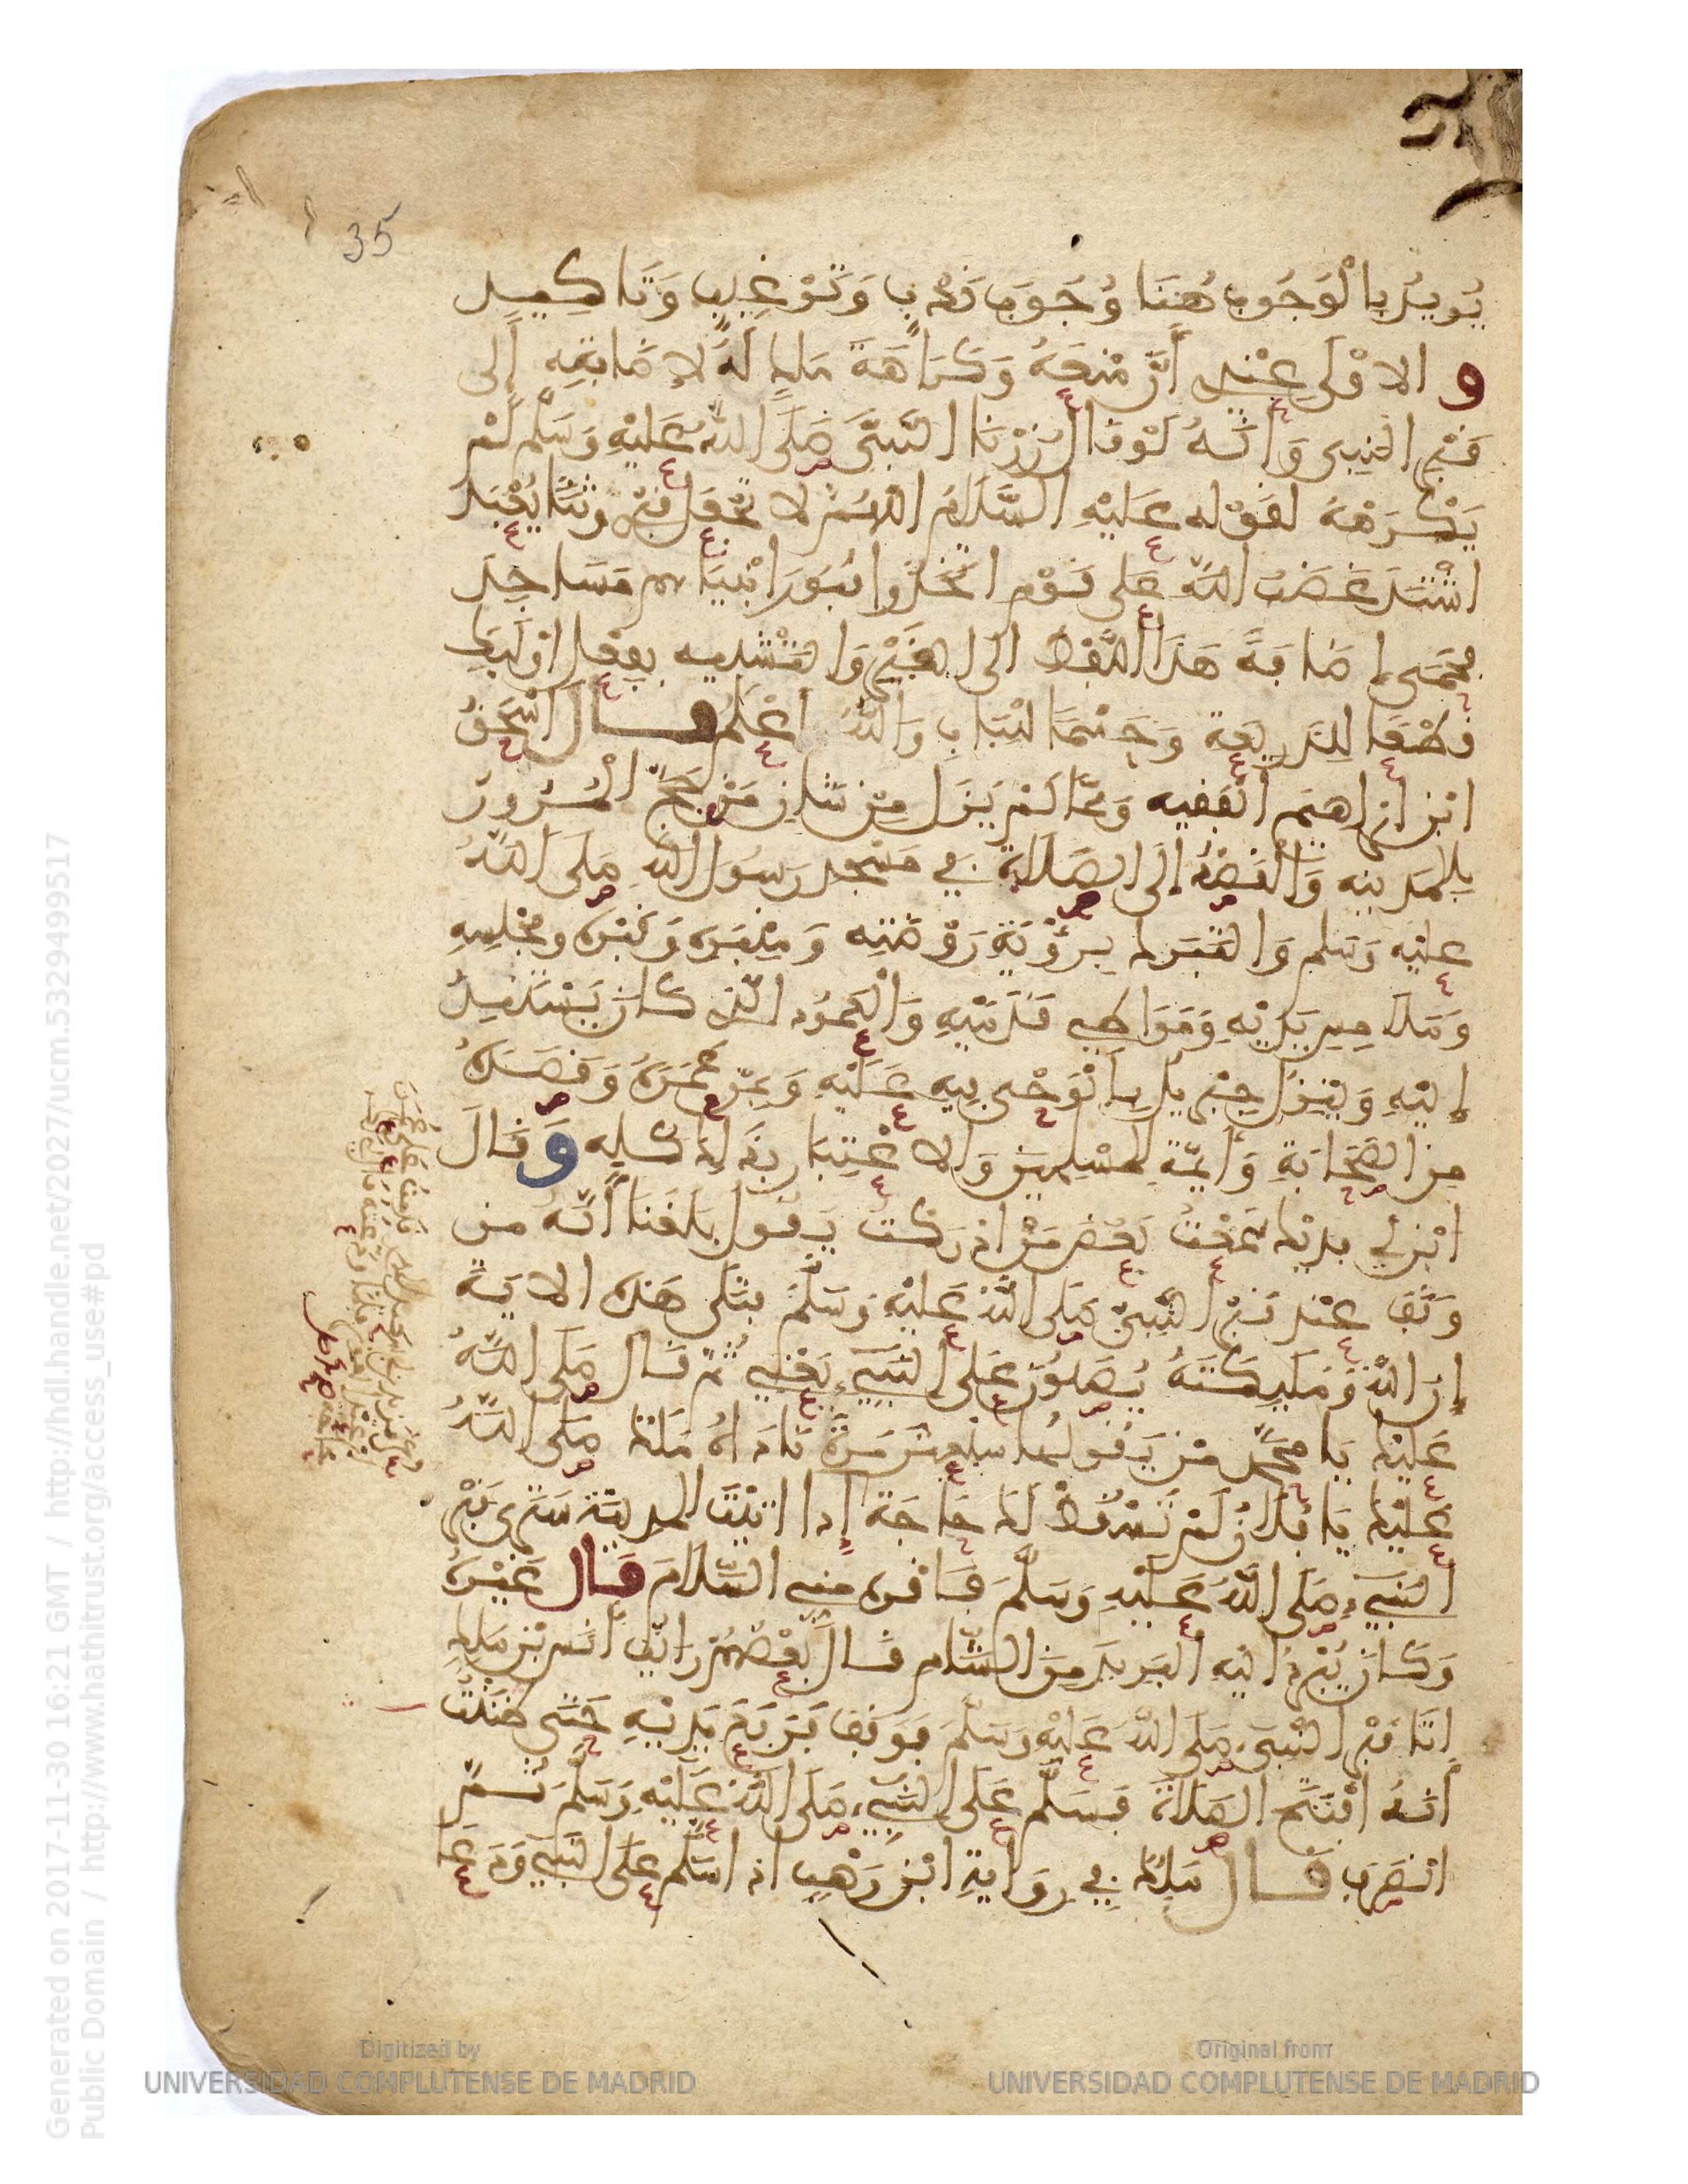 35
يُريدُ بالْوُجُوبِ هُنَا وُجُوبَ نَدْبٍ وَتَرْغِيبٍ وَتَاكِيدٍ
و الاوْلَى عِنْدِي أَنَّ مَنْعَهُ وَكَرَاهَةَ مَلِكٍ لَهُ لاِضَافَتِهِ إلى
قَبْرِ النبي وَأَنَّهُ لَوْ قَالَ زُرْنَا النَّبِيَّ صَلَّى اللهُ عَلَيْهِ وَسَلَّم لَمْ
يَكْرَهْهُ لقَوْله عَلَيْهِ السَّلَامُ اللهُمَّ لا تَجْعَل قَبْرِي وَثَنًا يُعْبَدُ
اشْتَدَّ غَضَبُ اللهِ عَلى قَوْمٍ اتَّخَذُوا قُبُورَ انْبِيَائِهم مَسَاجِدَ
فَحَمَى إضَافَةَ هَذَا اللَّفْظِ الَى القَبْرِ وَالتَّشْبِيهِ بِفِعْلِ اوْلَيِكَ
قَطْعًا لِلذَّرِيعَةِ وَحَسْمًا لِلْبَابِ وَاللهُ أَعْلَم قَالَ اسْحَقُ
ابْنُ ابْرَاهِيمَ الْفَقِيهُ وَمِمَّا لَمْ يَزَل مِنْ شَانِ مَنْ حَجَّ الْمُرُورُ
بِالمَدِينَةِ وَالْقَصْدُ إلَى الصَّلَاةِ فِي مَسْجِدِ رَسُولِ اللهِ صَلَّى اللهُ
عليْهِ وَسَلم وَالتَّبَرك بِرُؤْيَةِ رَوْضَتِهِ وَمِنْبَرِهِ وَقَبْرِهِ وَمَجْلِسِهِ
وَمَلَامِسِ يَدَيْهِ وَمَوَاطِي قَدَمَيْهِ وَالْعَمُودِ الَّذِي كَانَ يَسْتَنِدُ
إلَيْهِ وَيَنْزِلُ جِبْرِيلُ بِالْوَحْيِ فِيهِ عَلَيْهِ وَبِمَنْ عَمَرَهُ وَقَصَدَهُ
مِنَ الصَّحَابَةِ وَأَيِمَّةِ المُسْلِمِينَ وَالاعْتِبَارِ بِذَلِكَ كُلِّهِ وَ قَالَ
ابْنُ أَبِي فُدَيْك سَمِعْتُ بَعْضَ مَنْ ادْرَكْتُ يَقُول بَلَغَنَا أَنَّهُ مَن
وَقَفَ عِنْدَ قَبْرِ النَّبِيِّ صَلَّى اللهُ عَلَيْهِ وَسَلَّمَ فتَلَى هَذِهِ الايَةَ
إنَّ اللهَ وَمَلَيِكَتَهُ يُصَلُّونَ عَلَى النَّبِيءِ يَعْنِي ثُمَّ قَالَ صَلَّى اللهُ
عَلَيْكَ يَا مُحَمَّد مَنْ يَقُولُهَا سَبْعِينَ مَرَّةً نَادَاهُ مَلَك صَلَّى اللهُ
عَلَيْكَ يَا فُلَانُ لَمْ تَسْقُطْ لَكَ حَاجَة إذا اتَيْتَ المدينَةَ سَتَرى قَبْرَ
النَّبِيءِ صَلَّى اللهُ عَلَيْهِ وَسَلَّمَ فَاقْرِهِ مِنِّي السَّلَامَ قَالَ غَيْرُهُ
وَكَانَ يُبْرِدُ الَيْهِ البَرِيدَ مِنَ الشَّامِ قَالَ بَعْضُهُمْ رَايْتُ أَنَسَ بْنَ مَلِكٍ
اتَا قَبْرَ النَّبِيءِ صَلَّى اللهُ عَلَيْهِ وَسَلَّمَ فَوَقَفَ فَرَفَعَ يَدَيْهِ حَتَّى ظَنَنْتُ
أَنَّهُ افْتَتَحَ الصَّلَاةَ فَسَلَّمَ عَلَى النَّبِيءِ صَلَّى اللهُ عَلَيْهِ وَسَلَّمَ ثُمَّ
انْصَرَفَ قَالَ مَلِك فِي رِوَايَةِ ابْنِ وَهْبٍ اذا سَلَّمَ عَلَى النَّبِيِّ وَدَعَا
Generated on 2017-11-30 16:21 GMT / http://hdl.handle.net/2027/ucm.5329499517
Public Domain / http://www.hathitrust.org/access_use#pd
Digitized by
UNIVERSIDAD COMPLUTENSE DE MADRID
Original from
UNIVERSIDAD COMPLUTENSE DE MADRID